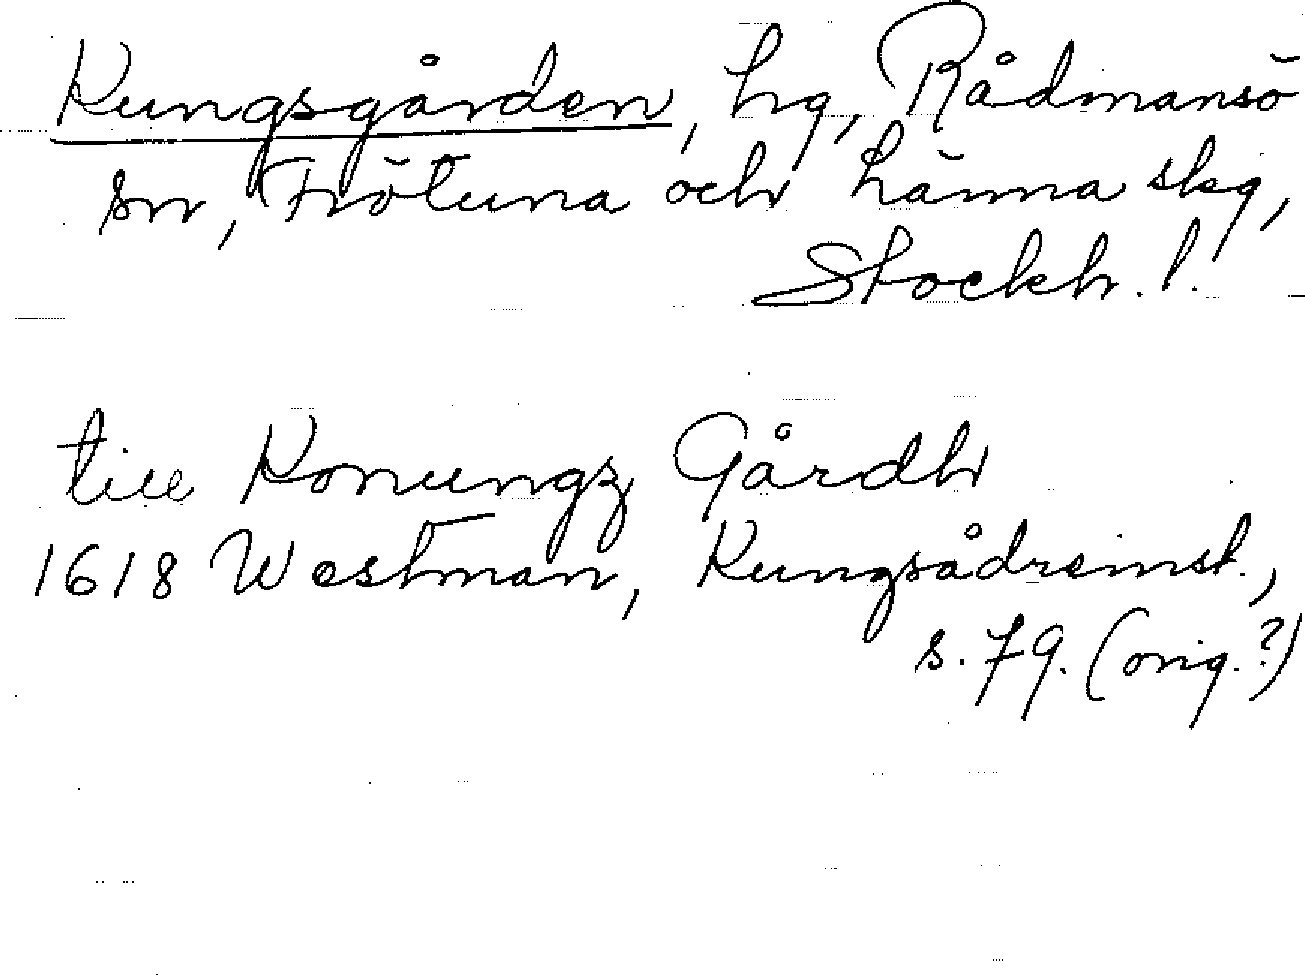 Kungsgården, hg, Rådmansö
sn, Frötuna och Länna skg,
Stockh. l.
till Konungz Gårdh
1618 Westman, Kungsådreinst.,
s. 79. (orig.?)